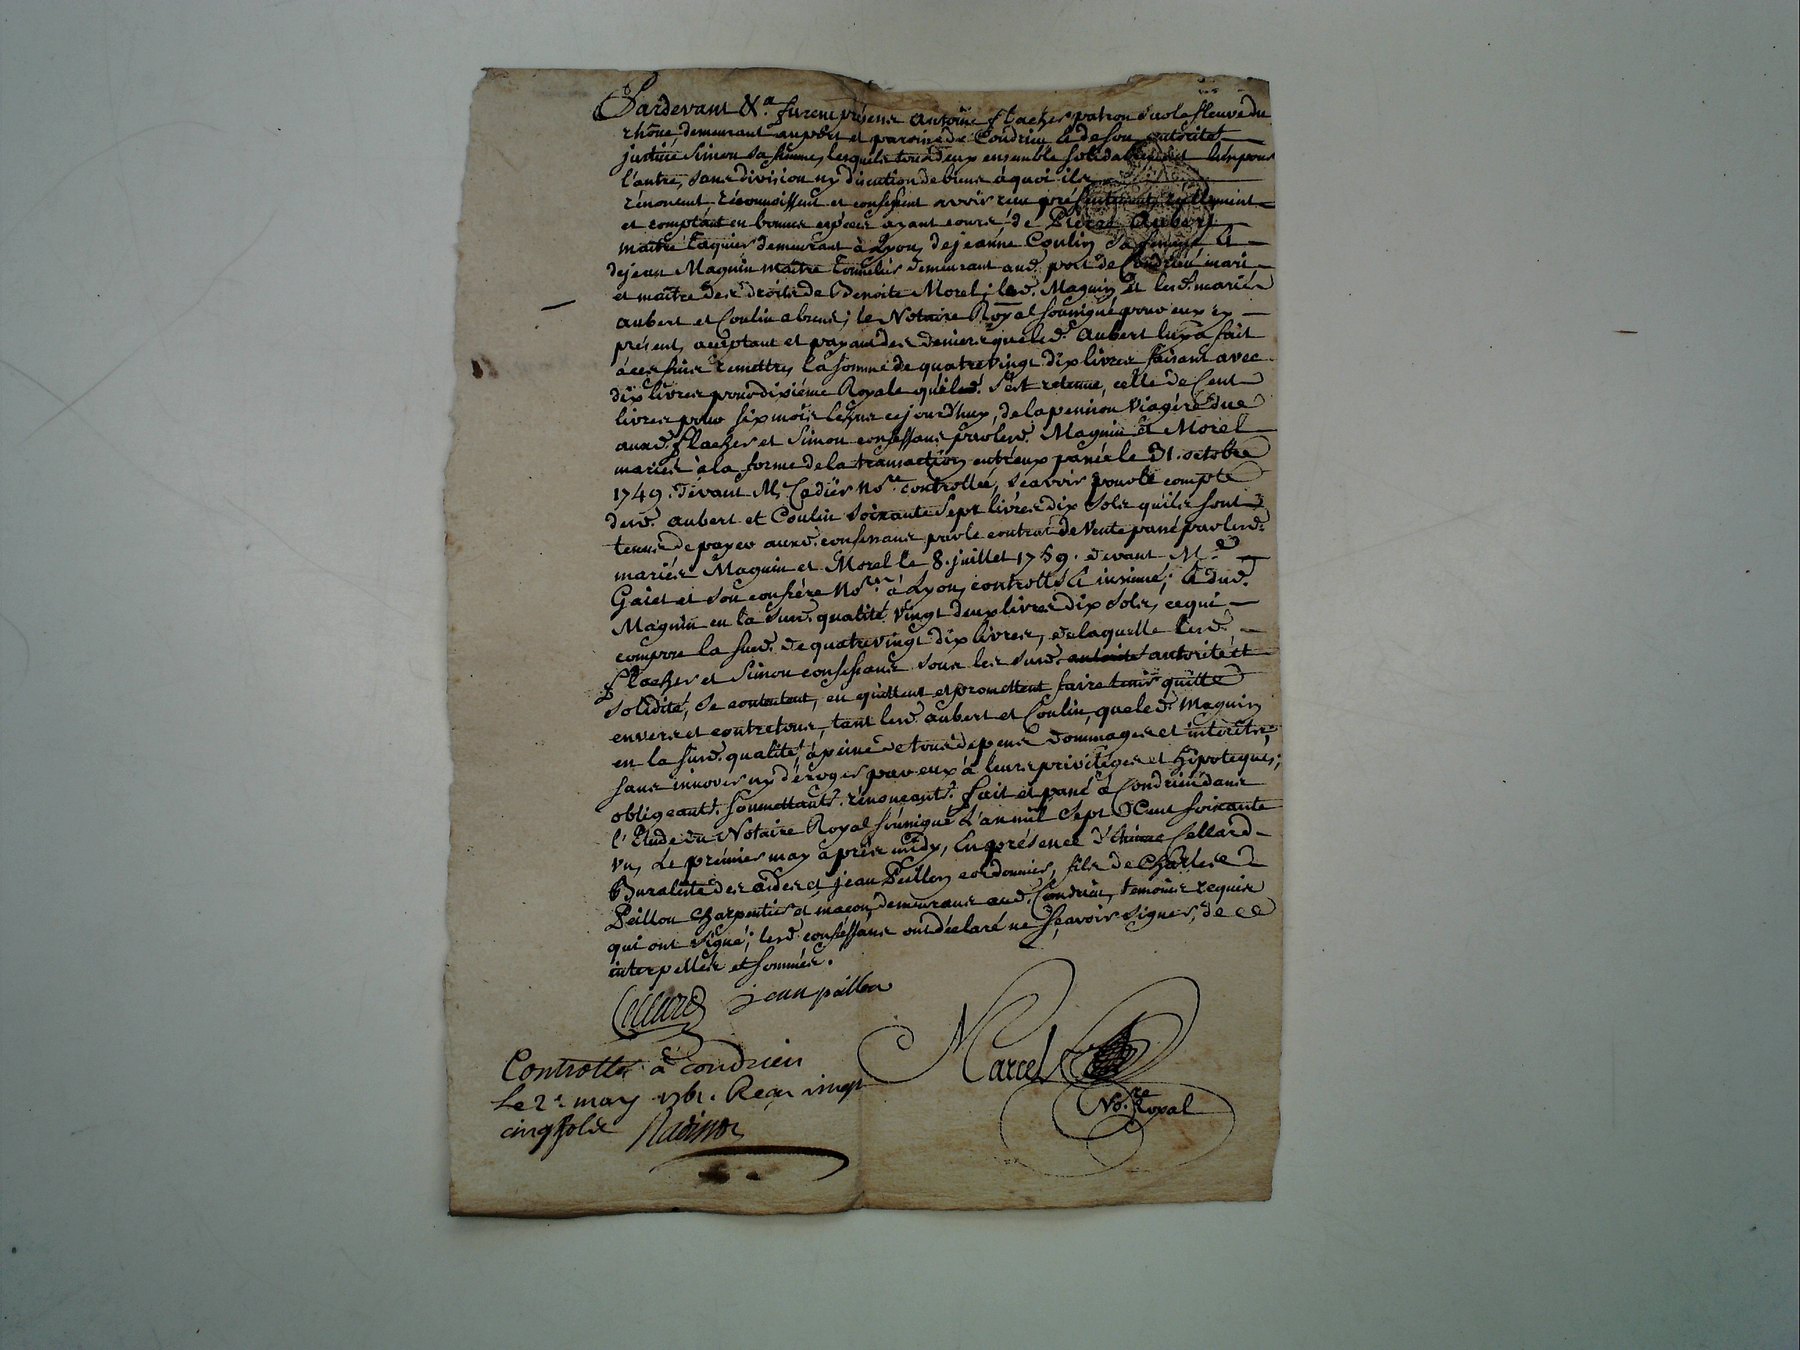 Pardevant &.a furent présens antoine flacher patron sur le fleuve du
rhône demeurant au port et paroisse de Condrieu & de son autorité
justine Simon sa femme, lesquels tous deux ensemble solidairement l'un pour
l'autre, sans division ny discution de biens à quoi ils
rénoncent, réconnoissent et confessent avoir recu présentement réellement
et comptant en bonnes espèces ayant cours de Pierre Aubert
maitre demeurant à Lyon, de jeanne Coulin sa femme &
de jean Magnin maitre tonnelier demeurant aud. port de Condrieu mari
et maître des droits de Benoite Morel; led. Magnin et lesd. mariés
aubert et Coulin absens; le Notaire Royal soussigné pour eux cy
présent, acceptant et payant des deniers que led. Aubert luy a fait
à ces fins remettre, la somme de quatre vingt dix livres faisant avec
dix livres pour dixiéme Royale qu'il s'est retenue, celle de Cent
livres pour six mois échus cejourd'huy, de la pension viagére due
auxd. flacher et Simon confessans par lesd. Magnin et Morel
mariés à la forme de la transaction entr'eux passée le 31. octobre
1749. dévant Me Cadier No.re controllée, sçavoir pour le compte
desd. aubert et Coulin soixante sept livres dix sols qu'ils sont
tenus de payer auxd. confessans par le contrat de vente passé par lesd.
mariés Magnin et Morel le 8. juillet 1759. devant Me
Gaiet et son confrère No.res à Lyon, controllé & insinué; & dud.
Magnin en la susd. qualité vingt deux livres dix sols, ce qui
compose la susd. de quatre vingt dix livres, de laquelle lesd.
flacher et Simon confessans sous les susd. autorité et
solidité, se contentent, en quittent et promettent faire tenir quitte
envers et contre tous, tant lesd. aubert et Coulin, que led. Magnin
en la susd. qualité, à peine de tous dépens dommages et intérêts,
sans innover ny déroger par eux à leurs priviléges et hipoteques;
obligeants. soumettants. rénonçants. fait et passé à Condrieu dans
l'Etude du Notaire Royal soussigné L'an mil Sept Cent soixante
un, Le prémier may après midy, En présence d'étienne Cellard
Buraliste des aides et jean Peillon cordonnier, fils de Charles
Peillon Charpentier et maçon, demeurans aud. Condrieu, temoins requis
qui ont signé; lesd. confessans ont déclaré ne sçavoir signer, de ce
interpellés et sommés.
Cellard jean peillon
Marcel
No.re Royal
Controllé à condrieu
Le 2e may 1761. Reçu vingt
cinq sols